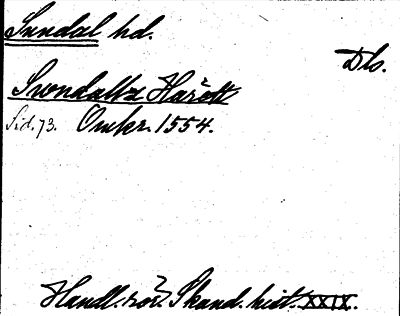 Sundal hd.
Dls.
Swndallz Harött
Sid. 73. Omkr. 1554.
Handl. rör. Skand. hist. XXIX.